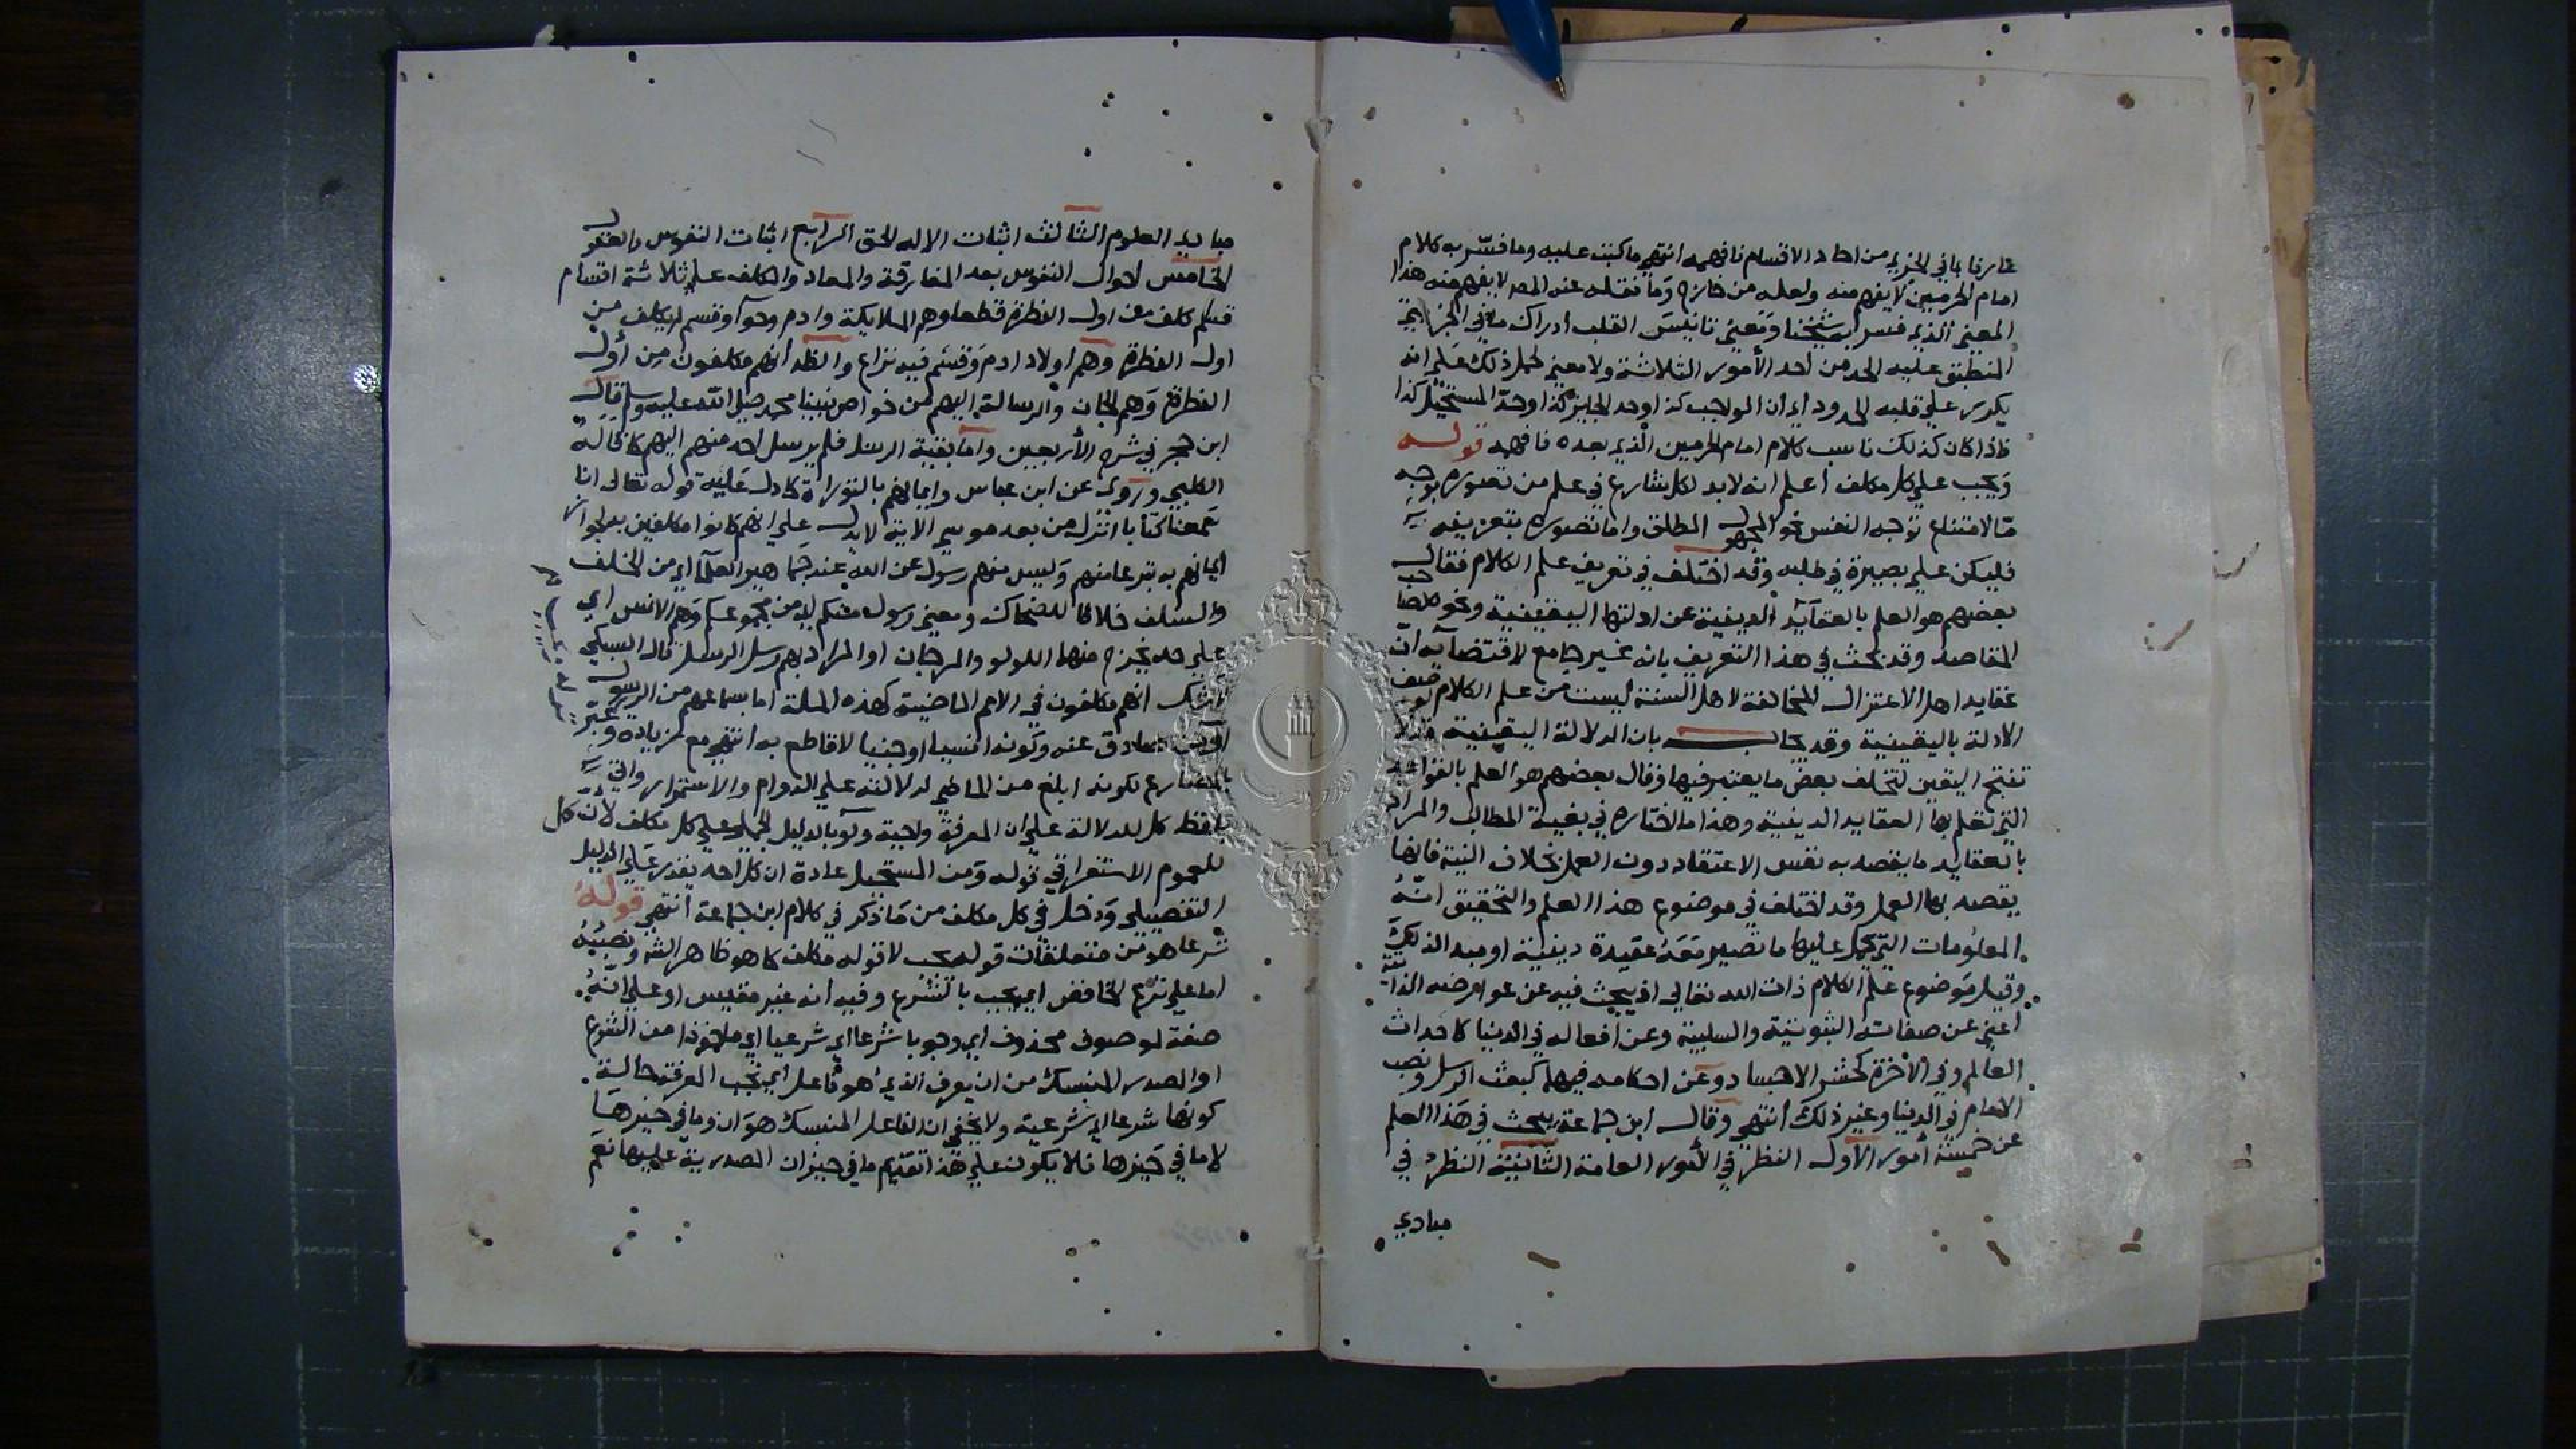 عارفا بما في الجزئي من احاد الاقسام فافهمه انتهي ما كتبت عليه وما فسّر به كلام
امام الحرمين لا يفهم منه ولعله من خارج وما نقله عنه المص لا يفهم منه هذا
المعني الذي فسر به شيخنا ومعني تانيس القلب ادراك ما في الجزئي
المنطبق عليه الحد من احد الأمور الثلاثة ولا معني لحمل ذلك علي انه
يكرر علي قلبه الحدود اي ان الواجب كذا وحد الجايز كذا وحد المستحيل كذا
فاذا كان كذلك ناسب كلام امام الحرمين الذي بعده فافهمه قوله
ويجب علي كل مكلف أعلم انه لا بد لكل شارع في علم من تصوره بوجه
مّا لامتناع توجه النفس نحو المجهول المطلق واما تصوره بتعريفه
فليكن علي بصيرة في طلبه وقد اختلف في تعريف علم الكلام فقال
بعضهم هو العلم بالعقآيد الدينية عن ادلتها اليقينية ونحوه لصاحب
المقاصد وقد بحث في هذا التعريف بانه غير جامع لاقتضآيه ان
عقايد اهل الاعتزال المخالفة لاهل السنة ليست من علم الكلام لوصف
الادلة باليقينية وقد يجاب بان الدلالة اليقينية قد لا
تنتج اليقين لتخلف بعض ما يعتبر فيها وقال بعضهم هو العلم بالقواعد
التي تعلم بها العقايد الدينية وهذا ما اختاره في بغية المطالب والمراد
بالعقايد ما يقصد به نفس الاعتقاد دون العمل بخلاف النية فانها
يقصد بها العمل وقد اختلف في موضوع هذا العلم والتحقيق انّهُ
المعلومات التي يحمل عليها ما تصير معه عقيدة دينية او مبدا لذلك
وقيل موضوع علم الكلام ذات الله تعالي اذ يبحث فيه عن عوارضه الذاتية
اعني عن صفاته الثبوتية والسلبية وعن أفعاله في الدنيا كاحداث
العالم وفي الأخرة كحشر الاجساد وعن احكامه فيهما كبعث الرسل ونصب
الامام في الدنيا وغير ذلك أنتهي وقال ابن جماعة يبحث في هذا العلم
عن خمسة أمور الأول النظر في الأمور العامة الثانية النظر في
مبادي
مبادي العلوم الثالث اثبات الاله الحق الرابع اثبات النفوس والعقول
الخامس احوال النفوس بعد المفارقة والمعاد والمكلف علي ثلاثة اقسام
قسم كلف من اول الفطرة قطعا وهم الملايكة وادم وحوآ وقسم لم يكلف من
اول الفطرة وهم اولاد ادم وقسم فيه نزاع والظه أنهم مكلفون من أول
الفطرة وهم الجان والرسالة اليهم من خواص نبينا محمد صلي الله عليه وسلم قاله
ابن حجر في شرح الأربعين وأما بقية الرسل فلم يرسل احد منهم اليهم كما قاله
الكلبي وروي عن ابن عباس وايمانهم بالتوراة كما دل عليه قوله تعالي انا
سمعنا كتابا انزل من بعد موسي الاية لا يدل علي انهم كانوا مكلفين به لجواز
ايمانهم به تبرعا منهم وليس منهم رسول عن الله عند جماهير العلمآ اي من الخلف
والسلف خلافا للضحاك ومعني رسول منكم اي من مجموعكم وهم الانس اي
علي حد يخرج منهما اللولو والمرجان او المراد بهم رسل الرسل قال السبكي
لاشك انهم مكلفون في الامم الماضية كهذه الملة اما بسماعهم من الرسول
او من صادق عنه وكونه انسيا او جنيا لا قاطع به انتهي مع زيادة وعبّر
بالمضارع لكونه ابلغ من الماضي لدلالته علي الدوام والاستمرار واتي
بلفظ كل للدلالة علي ان المعرفة واجبة ولو بالدليل الجملي علي كل مكلف لأن كل
للعموم الاستغراقي قوله ومن المستحيل عادة ان كل احد يقدر علي الدليل
التفصيلي ودخل في كل مكلف من ما ذكر في كلام ابن جماعة أنتهي قوله
شرعا هو من متعلقات قوله يجب لا قوله مكلف كما هو ظاهر الشر ونصبُهُ
اما علي نزع الخافض اي يجب بالشرع وفيه أنه غير مقيس او علي انّهُ
صفة لموصوف محذوف اي وجوبا شرعا اي شرعيا اي ماخوذا من الشرع
او المصدر المنسبك من ان يعرف الذي هو فاعل اي تجب المعرفة حالة
كونها شرعا اي شرعية ولا يخفي ان الفاعل المنسبك هو ان وما في حيزها
لا ما في حيزها فلا يكون علي هذا تقديم ما في حيز ان المصدرية عليها نعم